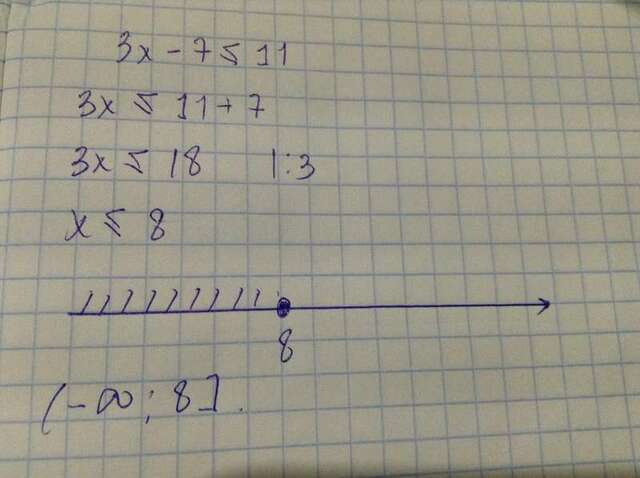 3x - 7 ≤ 11
3x ≤ 11 + 7
3x ≤ 18 | : 3
x ≤ 8
8
(-∞; 8].